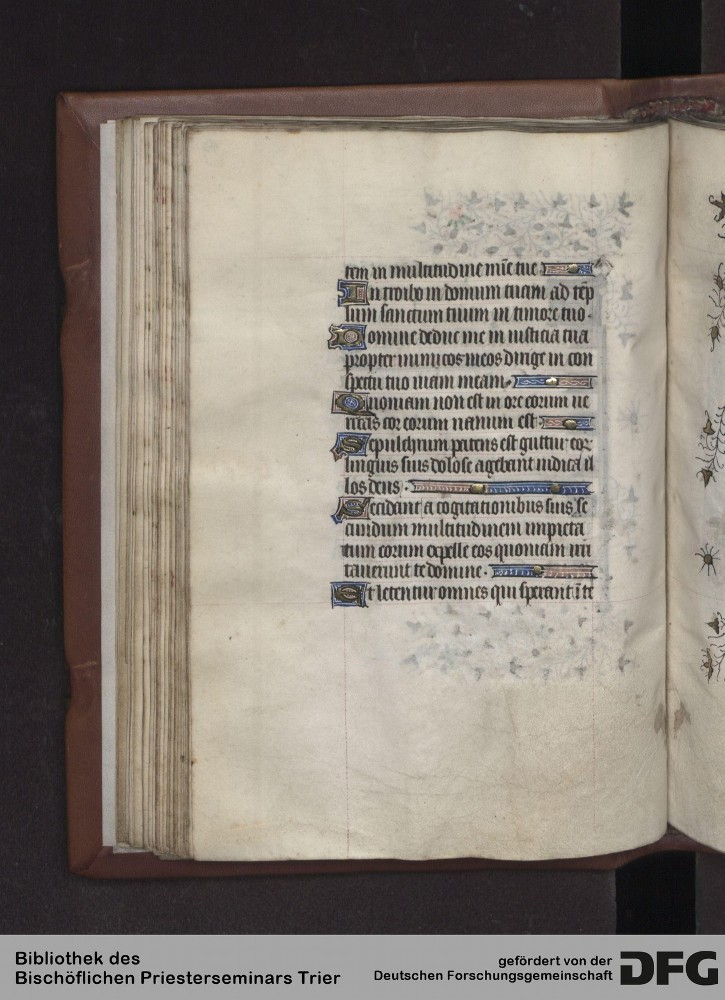 tem in multitudine mi̅e tue
Introibo in domum tuam ad te̅p
lum sanctum tuum in timore tuo.
Domine deduc me in iusticia tua
propter inimicos meos dirige in con
spectu tuo uiam meam.
Quoniam non est in ore eorum ue
ritas cor eorum uanum est
Sepulchrum patens est guttur eor
linguis suis dolose agebant iudica il
los deus.
Decidant a cogitationibus suis se
cundum multitudinem impieta
tum eorum expelle eos quoniam irri
tauerunt te domine.
Et letentur omnes qui sperant i̅ te
Bibliothek des
Bischöflichen Priesterseminars Trier
gefördert von der
Deutschen Forschungsgemeinschaft
DFG